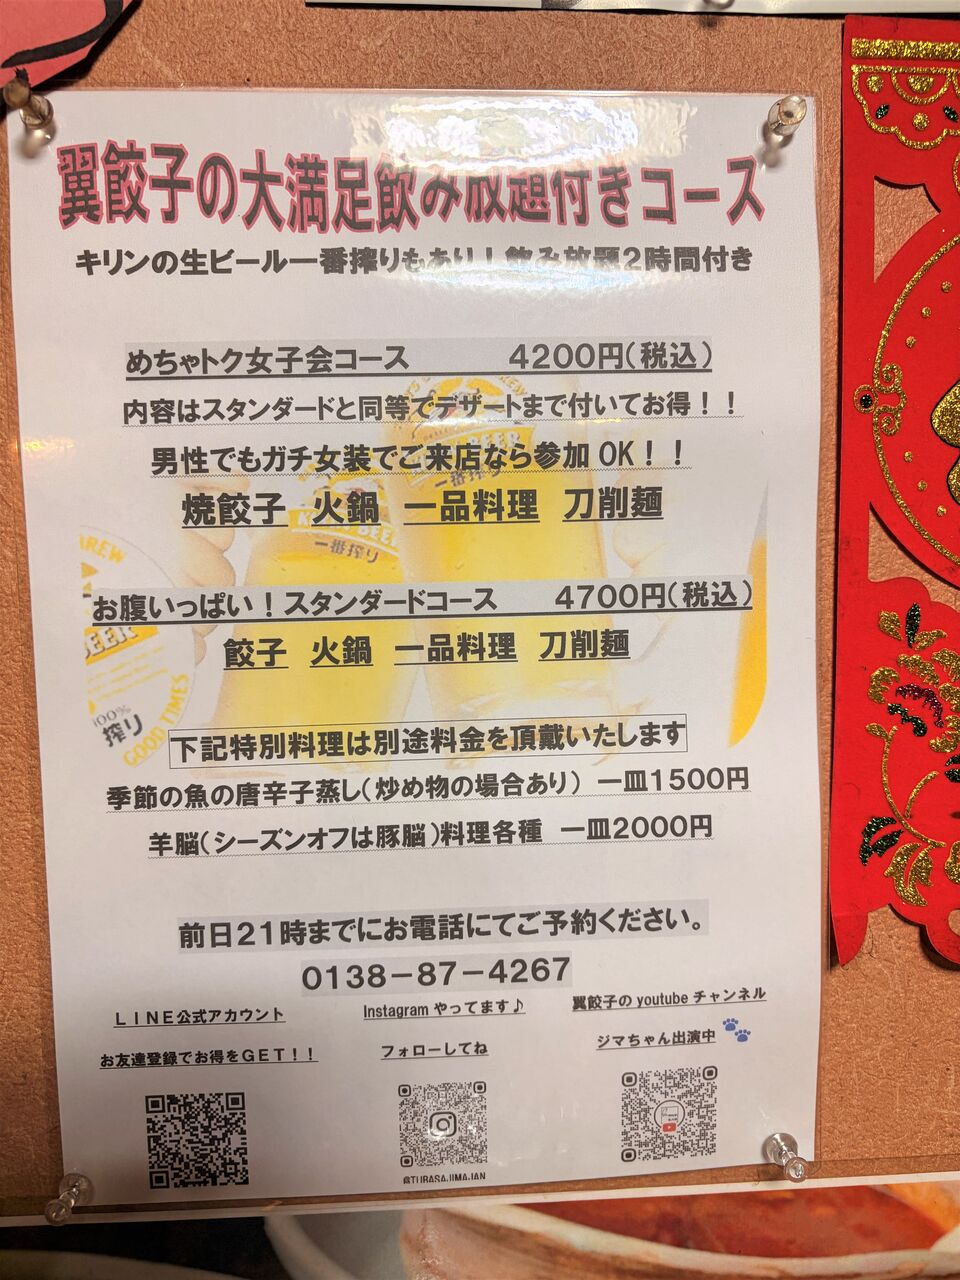 翼餃子の大満足飲み放題付きコース
キリンの生ビール一番搾りもあり！飲み放題2時間付き
めちゃトク女子会コース　4200円（税込）
内容はスタンダードと同等でデザートまで付いてお得！！
男性でもガチ女装でご来店なら参加OK！！
焼餃子　火鍋　一品料理　刀削麺
お腹いっぱい！スタンダードコース　4700円（税込）
餃子　火鍋　一品料理　刀削麺
下記特別料理は別途料金を頂戴いたします
季節の魚の唐辛子蒸し（炒め物の場合あり）　一皿1500円
羊脳（シーズンオフは豚脳）料理各種　一皿2000円
前日21時までにお電話にてご予約ください。
0138－87－4267
LINE公式アカウント
お友達登録でお得をGET！！
Instagramやってます♪
フォローしてね
@TUBASAJIMAJAN
翼餃子のyoutubeチャンネル
ジマちゃん出演中
BEER
一番搾り
BEER
一番搾り
BEER
100%
搾り
GOOD TIMES